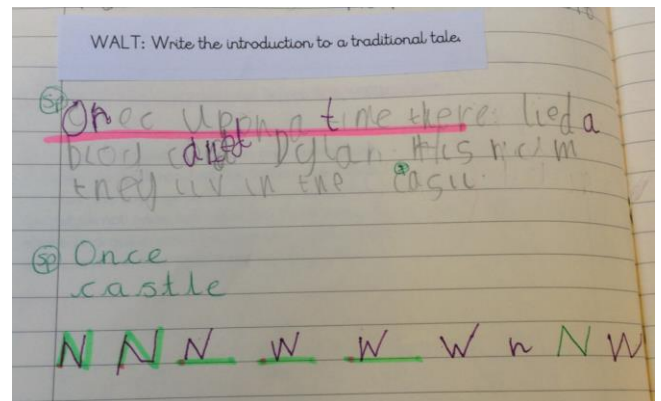 WALT: Write the introduction to a traditional tale.
sp Onec Upon a time there lied a
Dylan His
they liv in the
sp Once
castle
N N N W W W n N W